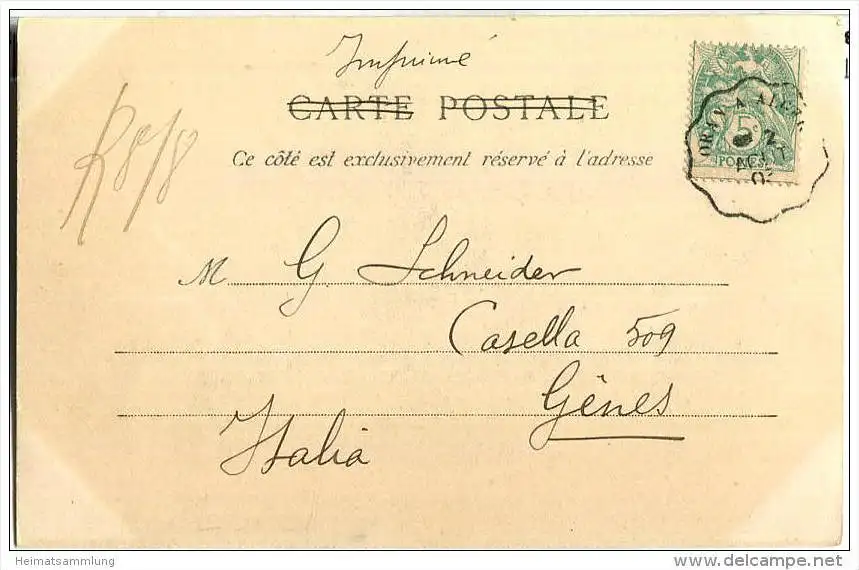 Imprimé
CARTE POSTALE
Ce côté est exclusivement réservé à l'adresse
R 8/8
ORAN A ALGER
2
AOUT
5c
POSTES
M G Schneider
Casella 509
Gênes
Italia
Heimatsammlung
www.delcampe.net